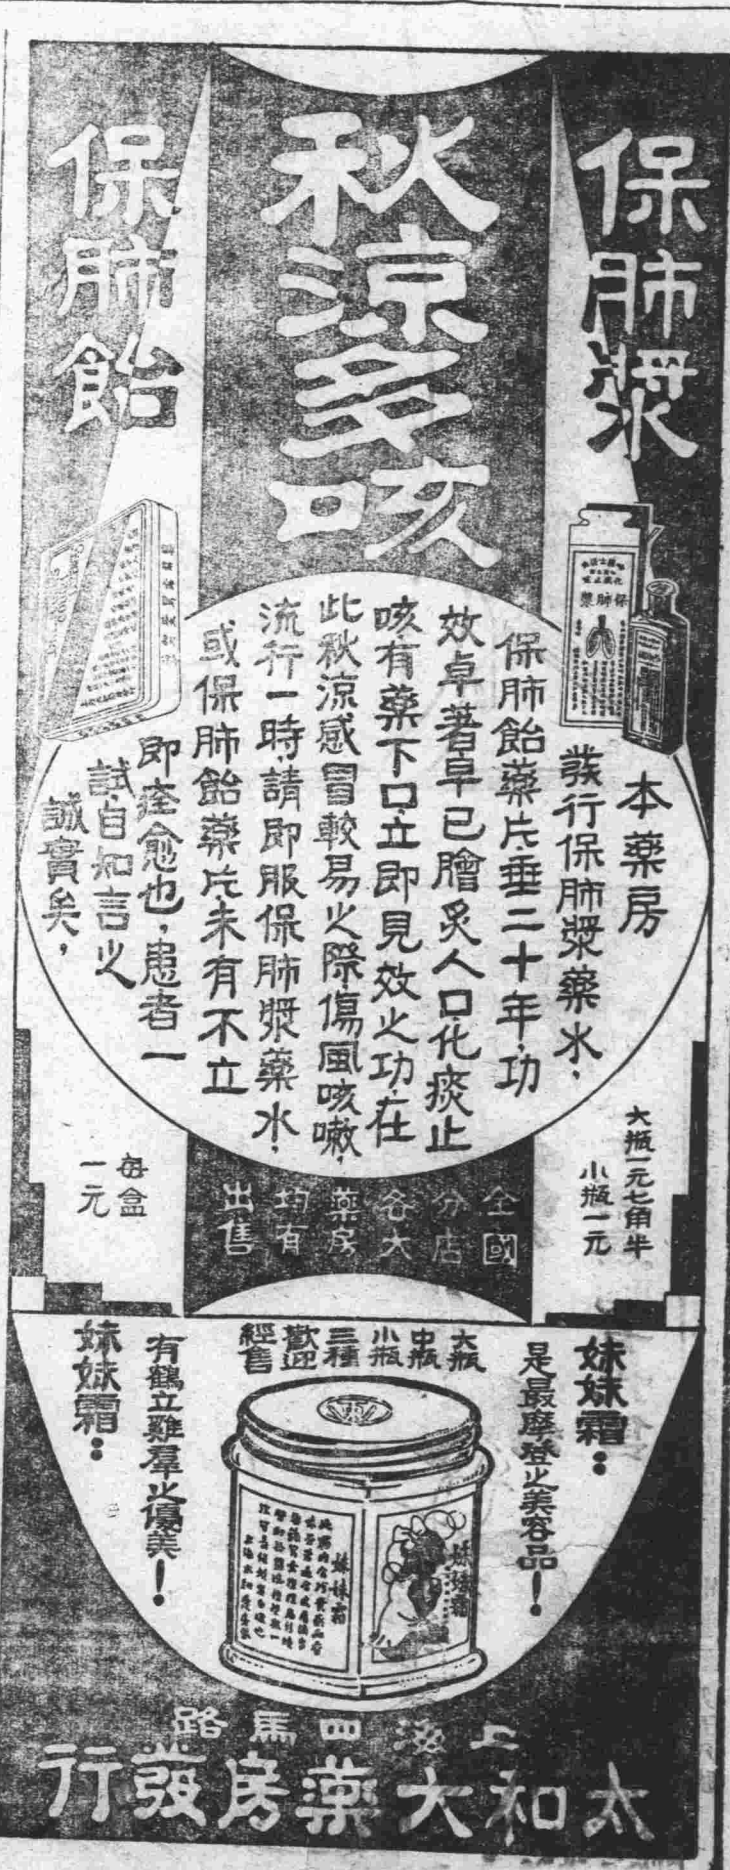 保肺漿
秋涼多咳
保肺飴
保肺漿
本藥房
發行保肺漿藥水，
保肺飴藥片，垂二十年，功
效卓著，早已膾炙人口，化痰止
咳，有藥下口，立即見效之功，在
此秋涼感冒較易之際，傷風咳嗽，
流行一時，請即服保肺漿藥水，
或保肺飴藥片，未有不立
即痊愈也，患者一
試，自知言之
誠實矣，
大瓶一元七角半
小瓶一元
全國
分店
各大
藥房
均有
出售
每盒
一元
妹妹霜：
是最摩登之美容品！
大瓶
中瓶
小瓶
三種
歡迎
經售
有鶴立雞羣之優美！
妹妹霜：
妹妹霜
妹妹霜
上海四馬路
太和大藥房發行